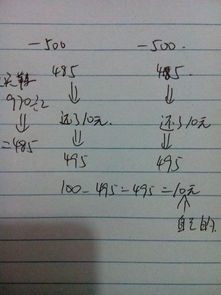 -500 -500.
485 485.
970÷2
还了10元 还了10元
=485
495 495
100-495-495=10元
自己的